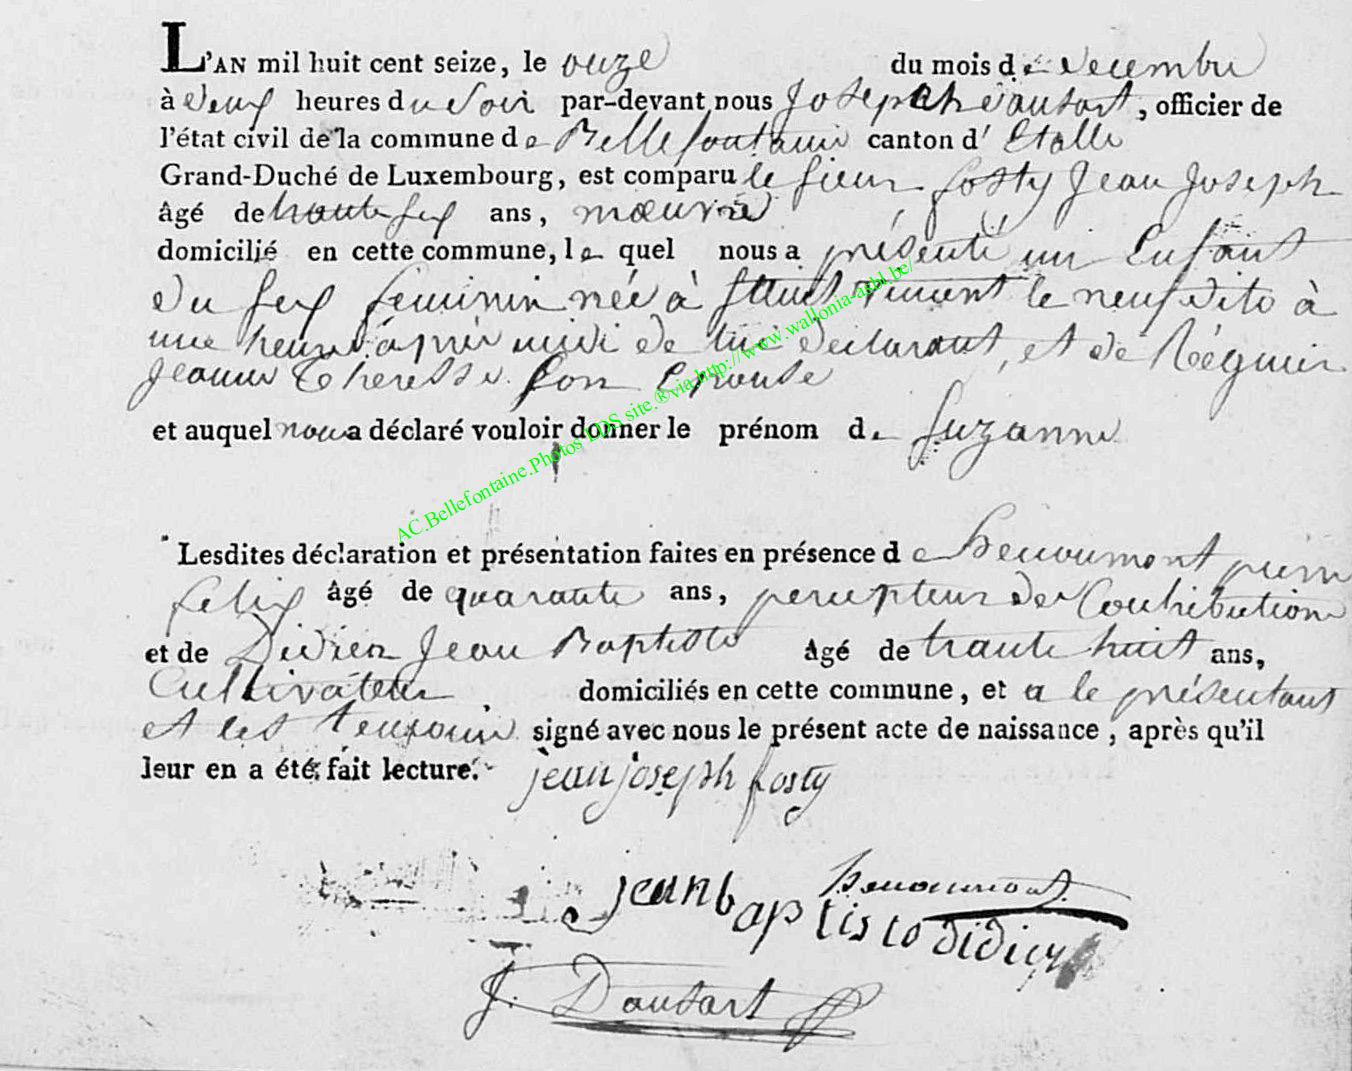 L'AN mil huit cent seize, le onze du mois de decembre
à deux heures du Soir par-devant nous Joseph dausart, officier de
l'état civil de la commune de Bellefontaine canton d' Etalle
Grand-Duché de Luxembourg, est comparu le sieur fosty Jean Joseph
âgé de ans, mœuvré
domicilié en cette commune, le quel nous a présenté un Enfant
du sex feminin née à Saint Vincent le neuf dito à
une heure après midi de lui declarant, et de Régnier
Jeanne Theresse Son Epouse
et auquel nous a déclaré vouloir donner le prénom de Suzanne
AC.Bellefontaine.Photos LDS site.®via http://www.wallonia-asbl.be/
Lesdites déclaration et présentation faites en présence de henoumont pierre
felix âgé de quarante ans, percepteur des Contributions
et de Didier Jean Baptiste âgé de trante huit ans,
Cultivateur, domiciliés en cette commune, et a le présentant
et les temoins signé avec nous le présent acte de naissance, après qu'il
leur en a été fait lecture.
jean joseph fosty
henoumont
jean baptiste didier
J. Dausart